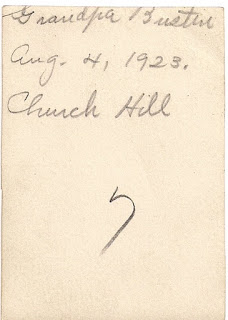 Grandpa Bustin
Aug. 4, 1923.
Church Hill
7